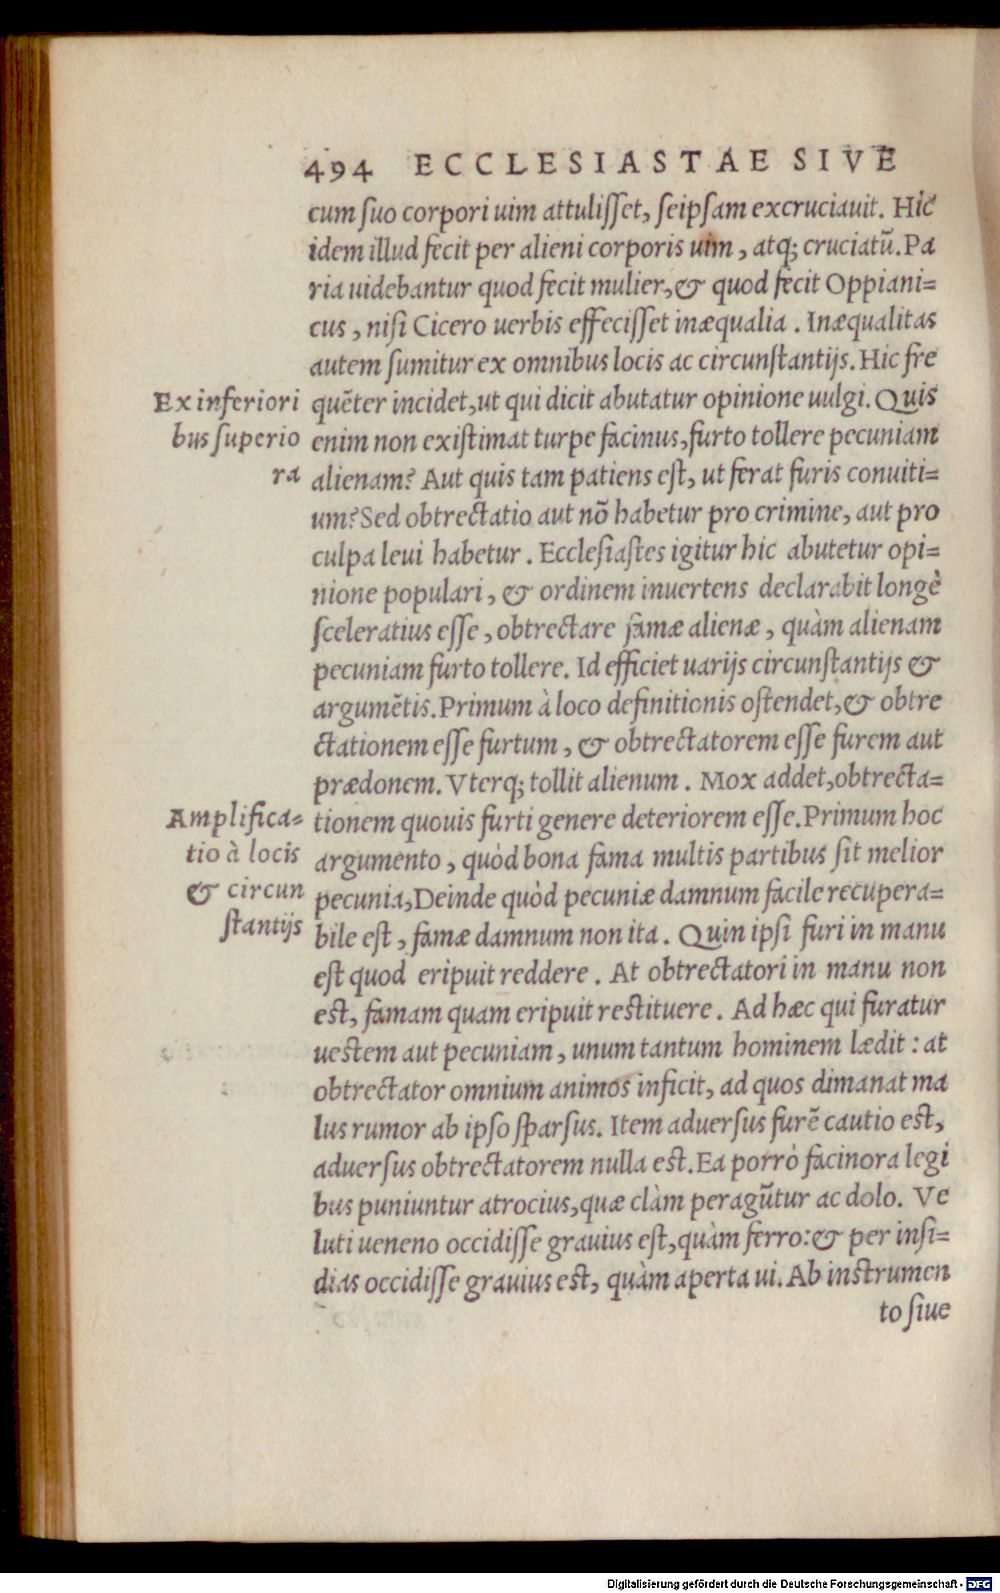 494 ECCLESIASTAE SIVE
cum suo corpori uim attulisset, seipsam excruciauit. Hic
idem illud fecit per alieni corporis uim, atq; cruciatũ. Pa
ria uidebantur quod fecit mulier, & quod fecit Oppiani=
cus, nisi Cicero uerbis effecisset inæqualia. Inæqualitas
autem sumitur ex omnibus locis ac circunstantijs. Hic fre
Ex inferiori
quẽter incidet, ut qui dicit abutatur opinione uulgi. Quis
bus superio
enim non existimat turpe facinus, furto tollere pecuniam
ra
alienam? Aut quis tam patiens est, ut ferat furis conuiti=
um? Sed obtrectatio aut nõ habetur pro crimine, aut pro
culpa leui habetur. Ecclesiastes igitur hic abutetur opi=
nione populari, & ordinem inuertens declarabit longè
sceleratius esse, obtrectare famæ alienæ, quàm alienam
pecuniam furto tollere. Id efficiet uarijs circunstantijs &
argumẽtis. Primum à loco definitionis ostendet, & obtre
ctationem esse furtum, & obtrectatorem esse furem aut
prædonem. Vterq; tollit alienum. Mox addet, obtrecta=
Amplifica=
tionem quouis furti genere deteriorem esse. Primum hoc
tio à locis
argumento, quòd bona fama multis partibus sit melior
& circun
pecunia, Deinde quòd pecuniæ damnum facile recupera=
stantijs
bile est, famæ damnum non ita. Quin ipsi furi in manu
est quod eripuit reddere. At obtrectatori in manu non
est, famam quam eripuit restituere. Ad hæc qui furatur
uestem aut pecuniam, unum tantum hominem lædit: at
obtrectator omnium animos inficit, ad quos dimanat ma
lus rumor ab ipso sparsus. Item aduersus furẽ cautio est,
aduersus obtrectatorem nulla est. Ea porrò facinora legi
bus puniuntur atrocius, quæ clàm peragũtur ac dolo. Ve
luti ueneno occidisse grauius est, quàm ferro: & per insi=
dias occidisse grauius est, quàm aperta ui. Ab instrumen
to siue
Digitalisierung gefördert durch die Deutsche Forschungsgemeinschaft - DFG